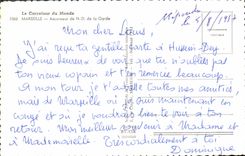 Le Carrefour du Monde
MARSEILLE - Ascenseur de N.-D. de la Garde
le 5/8/1957
Mon cher Louis,
J'ai reçu ta gentille carte d'Hussein-Dey.
Je suis heureux de voir que tu n'oublies pas
ton vieux copain et t'en remercie beaucoup.
A mon tour je t'adresse toutes mes amitiés,
mais de Marseille où je suis maintenant en
congé et où je voudrais bien te voir à ton
retour. Mon meilleur souvenir à Madame et
à Mademoiselle. Très cordialement à toi
Dominique